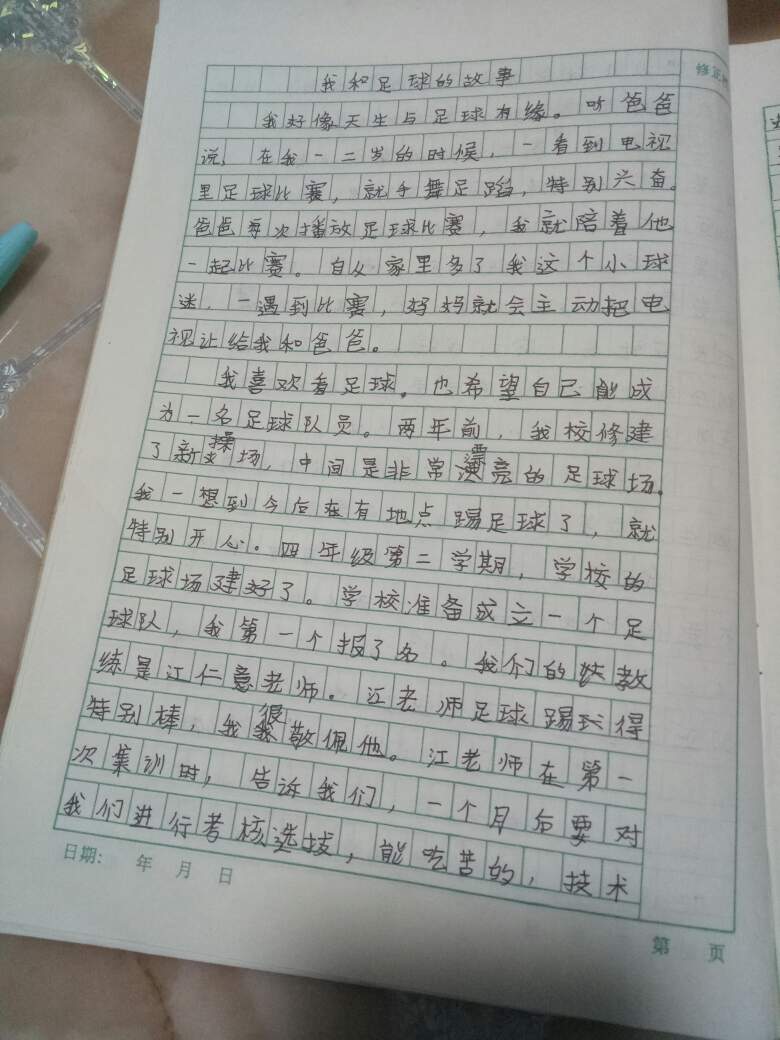 我和足球的故事
修正
我好像天生与足球有缘。听爸爸
说,在我一二岁的时候,一看到电视
里足球比赛,就手舞足蹈,特别兴奋。
爸爸每次播放足球比赛,我就陪着他
一起比赛。自从家里多了我这个小球
迷,一遇到比赛,妈妈就会主动把电
视让给我和爸爸。
我喜欢看足球。也希望自己能成
为一名足球队员。两年前,我校修建
了新操场,中间是非常漂亮的足球场。
我一想到今后在有地点踢足球了,就
特别开心。四年级第二学期,学校的
足球场建好了。学校准备成立一个足
球队,我第一个报了名。我们的教
练是江仁意老师。江老师足球踢得
特别棒,我很敬佩他。江老师在第一
次集训时,告诉我们,一个月后要对
我们进行考核选拔,能吃苦的,技术
日期: 年 月 日
第 页